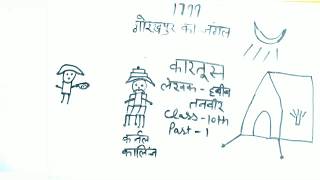 1799
गोरखपुर का जंगल
कारतूस
लेखक - हबीब
तनवीर
Class - 10th
Part - 1
कर्नल
कालिंज